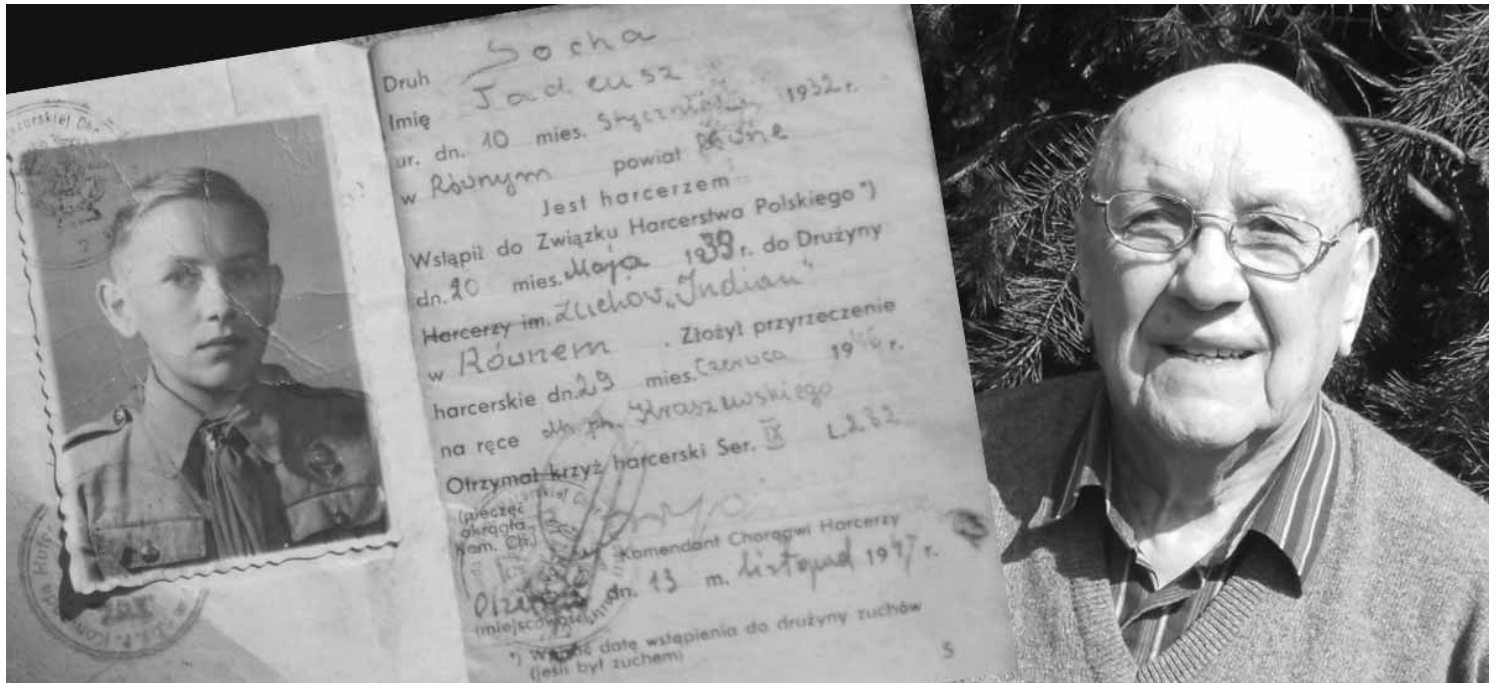 Druh Socha
Imię Tadeusz
ur. dn. 10 mies. Stycznia 1932 r.
w Równym powiat Równe
Jest harcerzem
Wstąpił do Związku Harcerstwa Polskiego *)
dn. 20 mies. Maja 1939 r. do Drużyny
Harcerzy im. Zuchów „Indian"
w Równem . Złożył przyrzeczenie
harcerskie dn. 29 mies. Czerwca 1946 r.
na ręce dh. ph. Kraszewskiego
Otrzymał krzyż harcerski Ser. IX L. 232
(pieczęć
okrągła
Kom. Ch.)
Komendant Chorągwi Harcerzy
Olsztyn dn. 13 m. listopad 1947 r.
(miejscowość)
*) Wpisać datę wstąpienia do drużyny zuchów
(jeśli był zuchem)
5